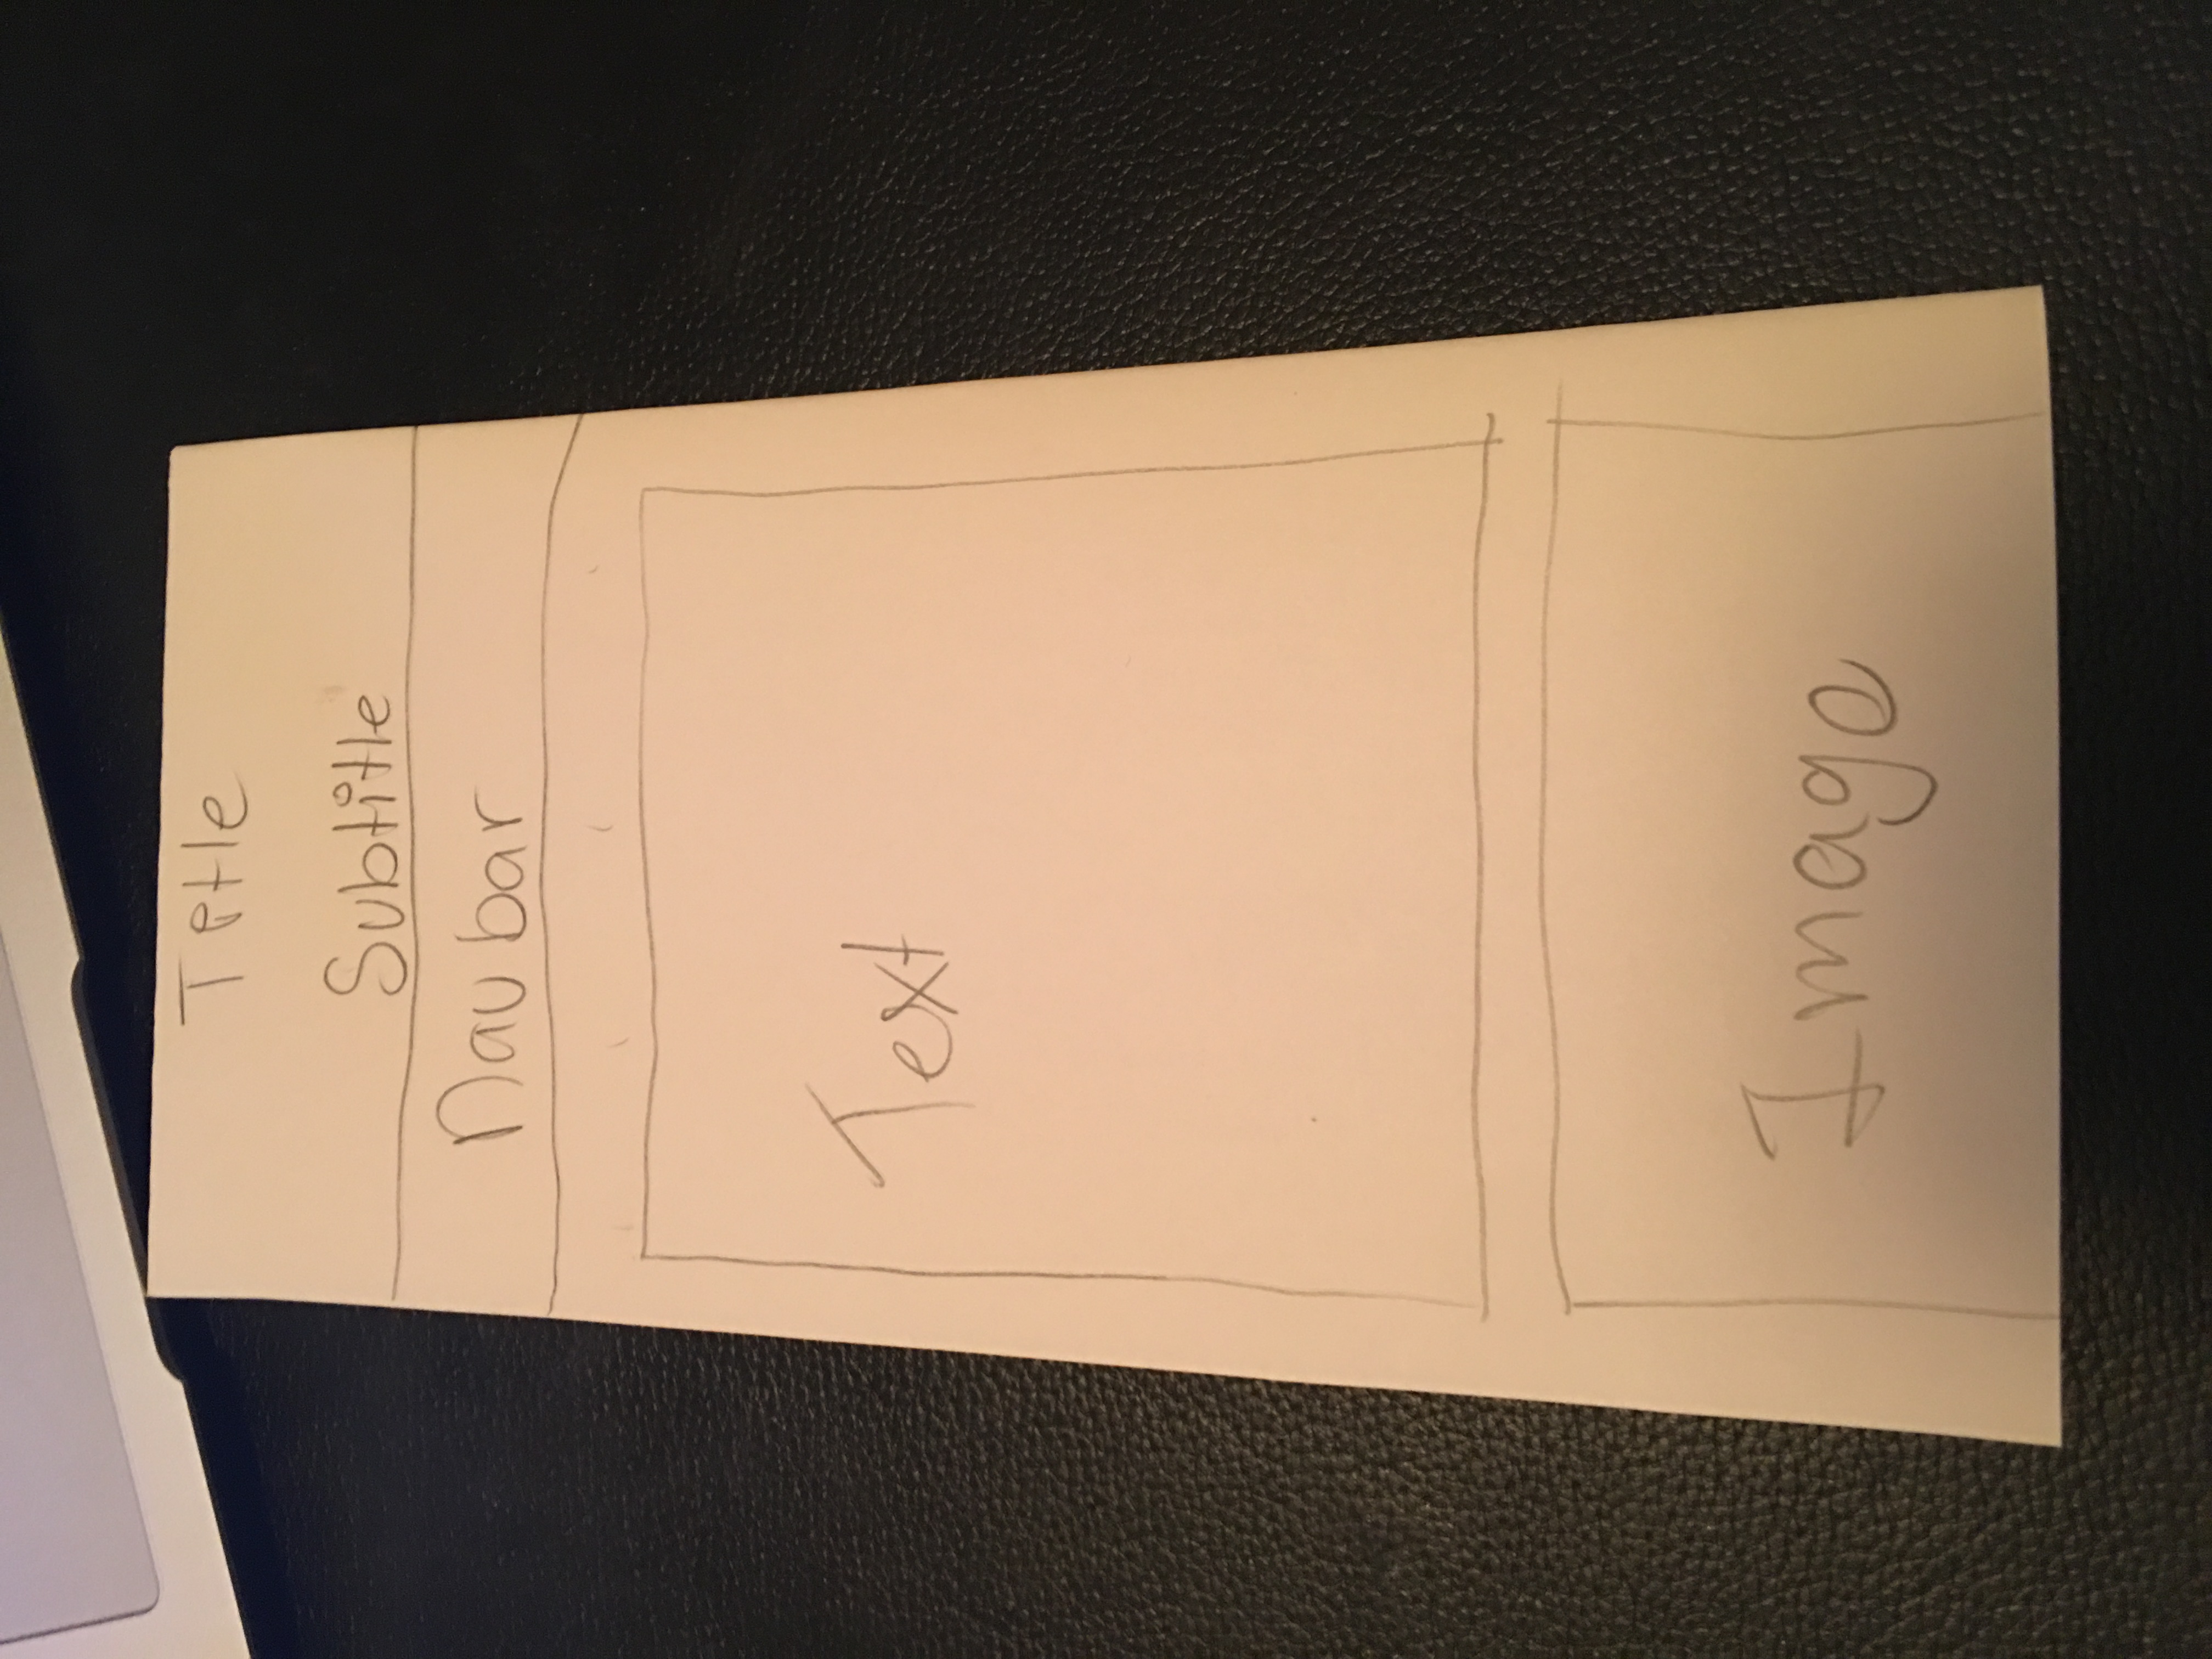 Title
Subtitle
Nav bar
Text
Image